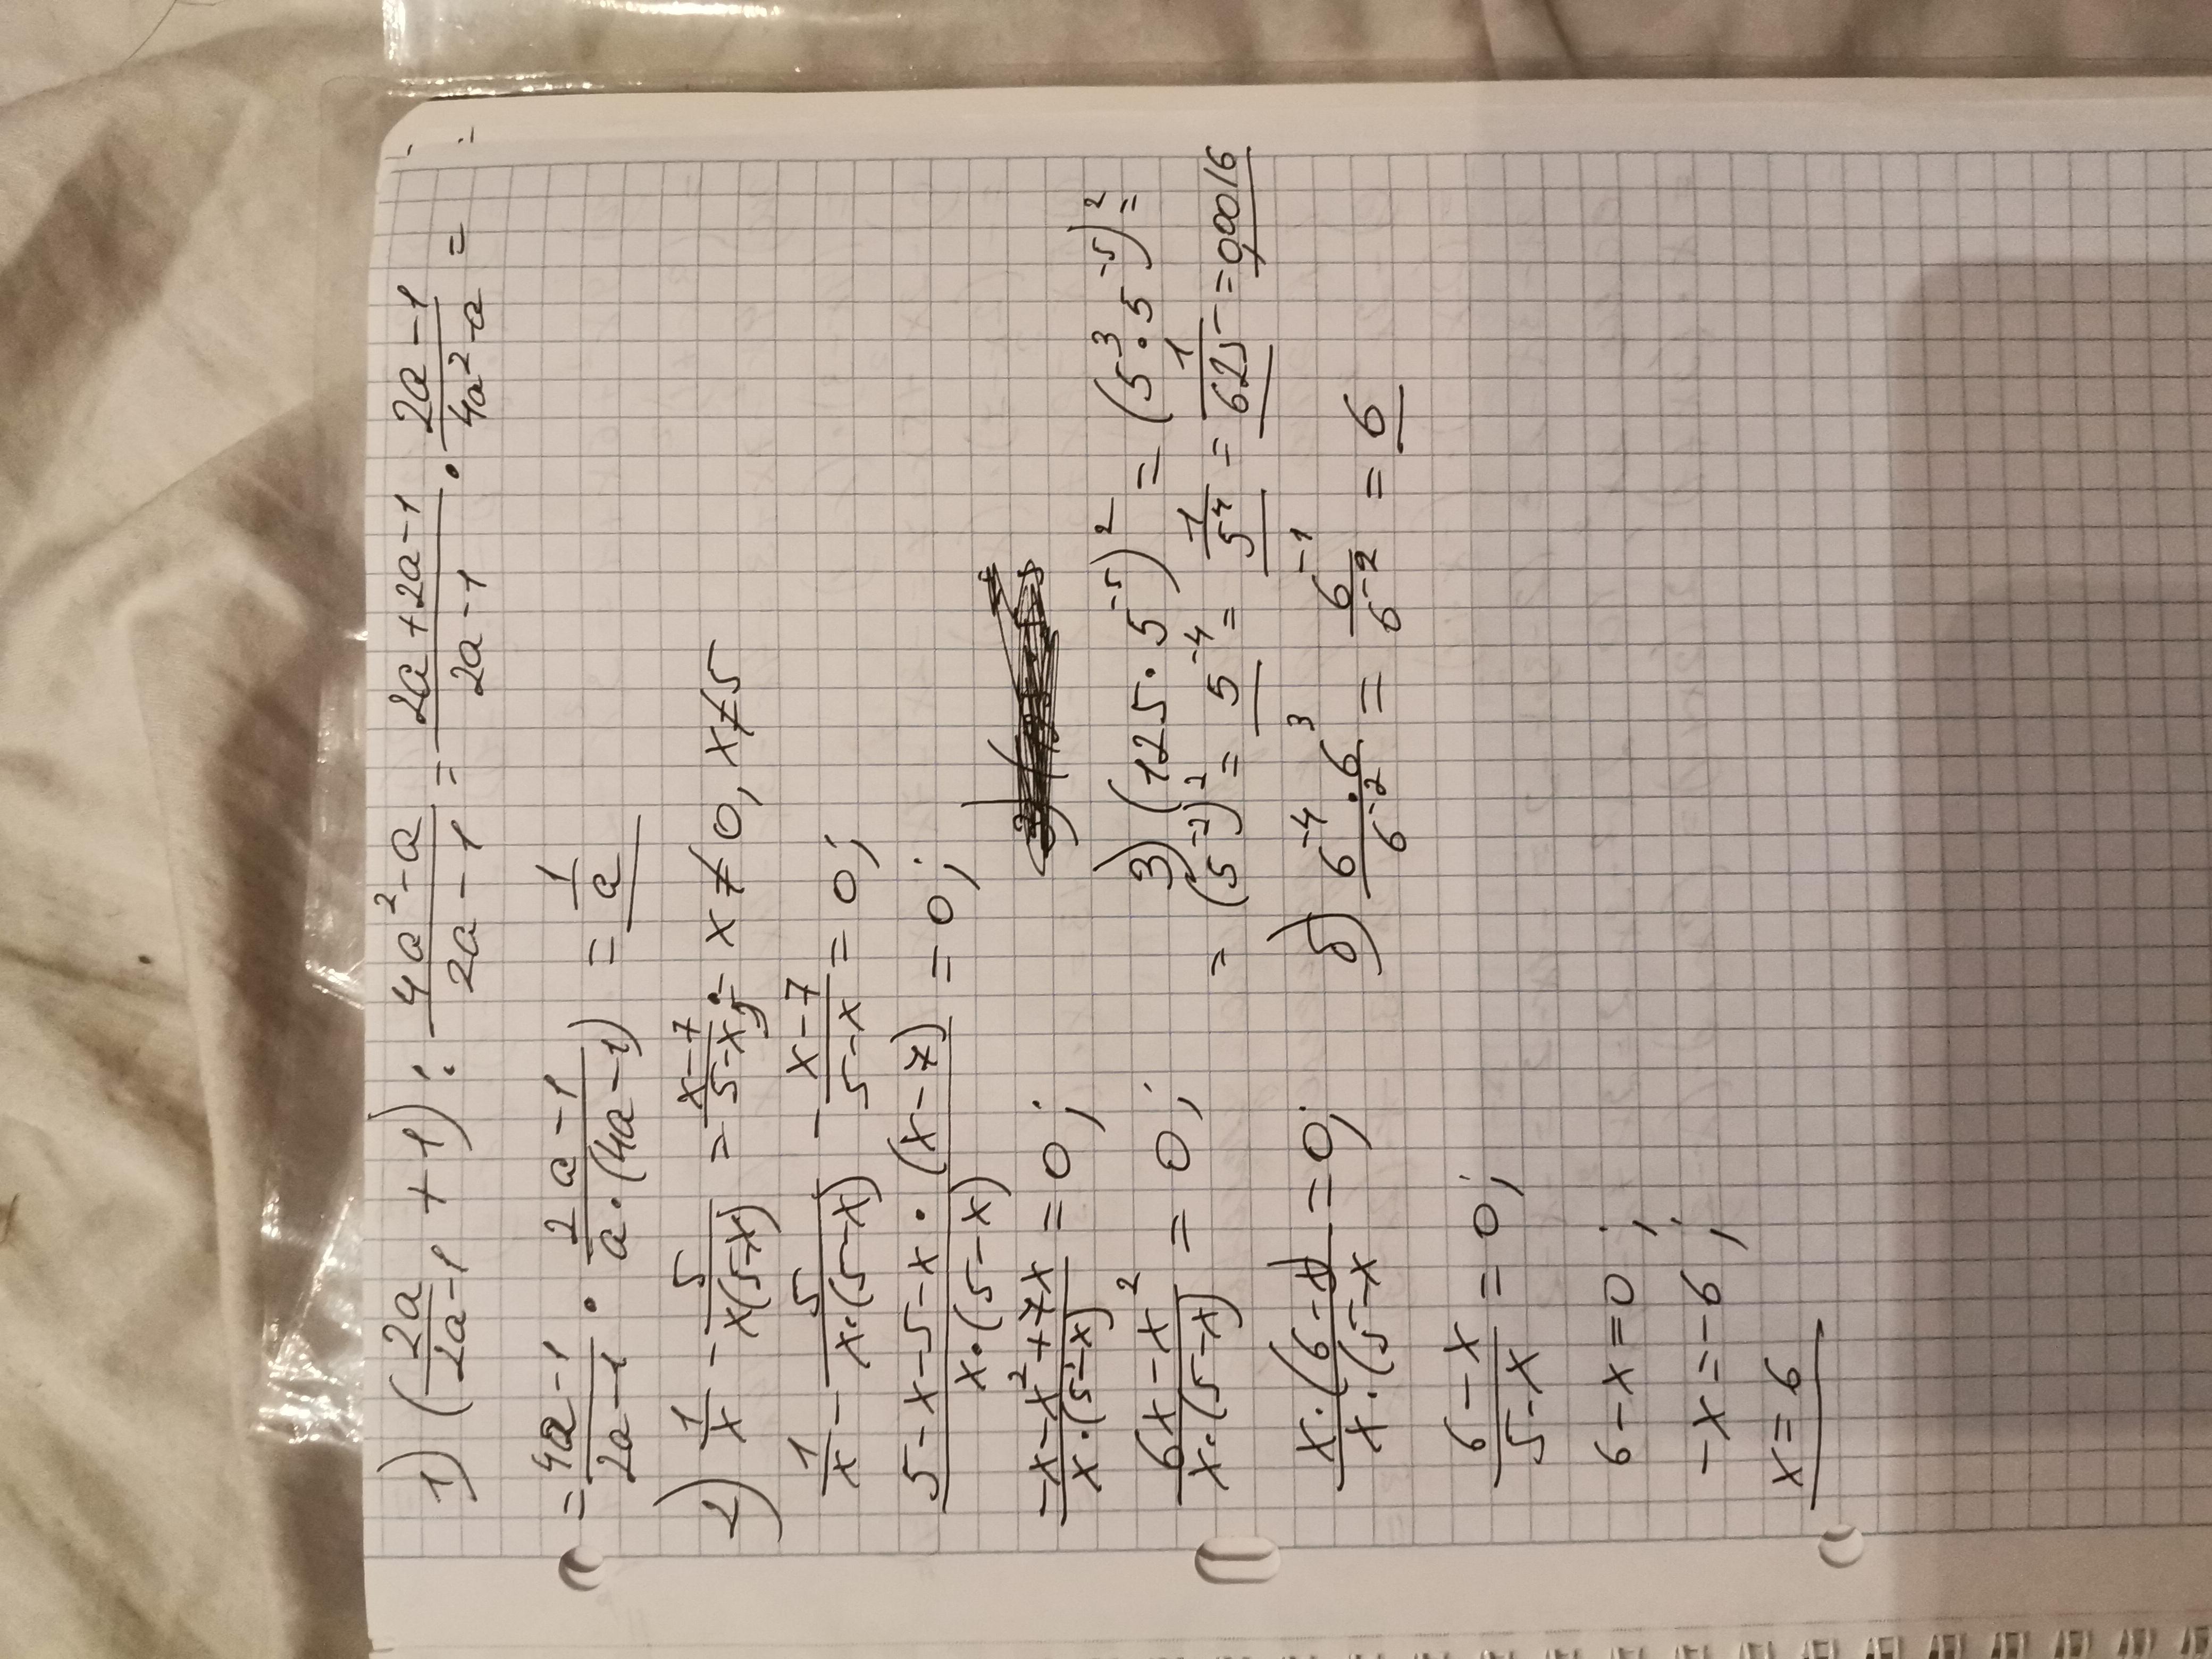 1) (2a/(2a-1) + 1) : (4a²-a)/(2a-1) = (2a+2a-1)/(2a-1) · (2a-1)/(4a²-a) =
= (4a-1)/(2a-1) · (2a-1)/(a·(4a-1)) = 1/a
2) 1/x - 5/(x(5-x)) = (x-7)/(5-x); x≠0, x≠5
1/x - 5/(x·(5-x)) - (x-7)/(5-x) = 0;
(5-x-5-x·(x-7))/(x·(5-x)) = 0;
(-x-x²+7x)/(x·(5-x)) = 0;
(6x-x²)/(x·(5-x)) = 0;
(x·(6-x))/(x·(5-x) = 0;
(6-x)/(5-x) = 0;
6-x=0;
-x=-6;
x=6
3) (125·5⁻⁵)² = (5³·5⁻⁵)² =
= (5⁻²)² = 5⁻⁴ = 1/5⁴ = 1/625 = 0,0016
б) (6⁻⁴·6³)/6⁻² = 6⁻¹/6⁻² = 6